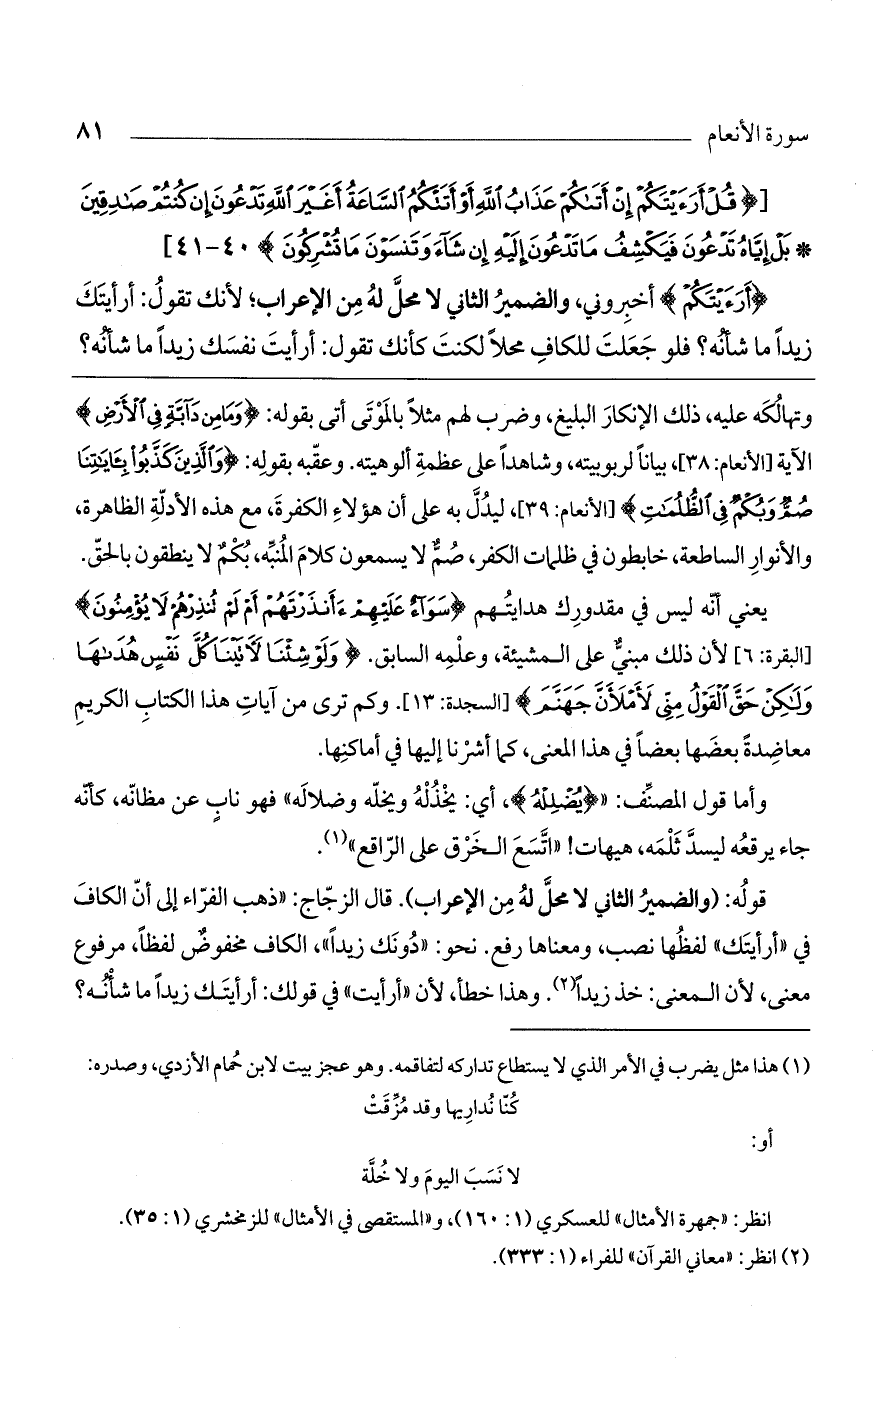 سورة الأنعام ٨١
[﴿ قُلْ أَرَءَيْتَكُمْ إِنْ أَتَىٰكُمْ عَذَابُ ٱللَّهِ أَوْ أَتَتْكُمُ ٱلسَّاعَةُ أَغَيْرَ ٱللَّهِ تَدْعُونَ إِن كُنتُمْ صَٰدِقِينَ
* بَلْ إِيَّاهُ تَدْعُونَ فَيَكْشِفُ مَا تَدْعُونَ إِلَيْهِ إِن شَآءَ وَتَنسَوْنَ مَا تُشْرِكُونَ ﴾ ٤٠-٤١]
﴿أَرَءَيْتَكُمْ ﴾ أخبِروني، والضميرُ الثاني لا محلَّ لهُ مِن الإعراب؛ لأنك تقولُ: أرأيتَكَ
زيداً ما شأنُه؟ فلو جَعَلتَ للكافِ محلاً لكنتَ كأنك تقول: أرأيتَ نفسَك زيداً ما شأنُه؟
وتهالُكَه عليه، ذلك الإنكارَ البليغ، وضرب لهم مثلاً بالمَوْتَى أتى بقوله: ﴿وَمَا مِن دَآبَّةٍ فِي ٱلْأَرْضِ ﴾
الآية [الأنعام: ٣٨]، بياناً لربوبيته، وشاهداً على عظمةِ ألوهيته. وعقّبه بقولِه: ﴿وَٱلَّذِينَ كَذَّبُوا۟ بِـَٔايَٰتِنَا
صُمٌّ وَبُكْمٌ فِي ٱلظُّلُمَٰتِ ﴾ [الأنعام: ٣٩]، ليدُلَّ به على أن هؤلاءِ الكفرةَ، مع هذه الأدلّةِ الظاهرة،
والأنوارِ الساطعة، خابطون في ظلمات الكفر، صُمٌّ لا يسمعون كلامَ المُنبِّه، بُكْمٌ لا ينطقون بالحقّ.
يعني أنّه ليس في مقدورِك هدايتُهم ﴿سَوَآءٌ عَلَيْهِمْ ءَأَنذَرْتَهُمْ أَمْ لَمْ تُنذِرْهُمْ لَا يُؤْمِنُونَ﴾
[البقرة: ٦] لأن ذلك مبنيٌّ على المشيئة، وعلْمِه السابق. ﴿ وَلَوْ شِئْنَا لَأٓتَيْنَا كُلَّ نَفْسٍ هُدَىٰهَا
وَلَٰكِنْ حَقَّ ٱلْقَوْلُ مِنِّي لَأَمْلَأَنَّ جَهَنَّمَ ﴾ [السجدة: ١٣]. وكم ترى من آياتِ هذا الكتابِ الكريمِ
معاضِدةً بعضَها بعضاً في هذا المعنى، كما أشرْنا إليها في أماكنِها.
وأما قول المصنِّف: «﴿يُضْلِلْهُ ﴾، أي: يخْذُلْهُ ويخلّه وضلالَه» فهو نابٍ عن مظانّه، كأنّه
جاء يرقعُه ليسدَّ ثَلْمَه، هيهات! «اتَّسَعَ الخَرْق على الرّاقع»(١).
قولُه: (والضميرُ الثاني لا محلَّ لهُ مِن الإعراب). قال الزجّاج: «ذهب الفرّاء إلى أنّ الكافَ
في «أرأيتَك» لفظُها نصب، ومعناها رفع. نحو: «دُونَك زيداً»، الكاف مخفوضٌ لفظاً، مرفوع
معنى، لأن المعنى: خذ زيداً(٢). وهذا خطأ، لأن «أرأيت» في قولك: أرأيتَك زيداً ما شأنُه؟
(١) هذا مثل يضرب في الأمر الذي لا يستطاع تداركه لتفاقمه. وهو عجز بيت لابن حُمام الأزدي، وصدره:
كُنّا نُدارِيها وقد مُزِّقَتْ
أو:
لا نَسَبَ اليومَ ولا خُلَّة
انظر: «جمهرة الأمثال» للعسكري (١: ١٦٠)، و«المستقصى في الأمثال» للزمخشري (١: ٣٥).
(٢) انظر: «معاني القرآن» للفراء (١: ٣٣٣).